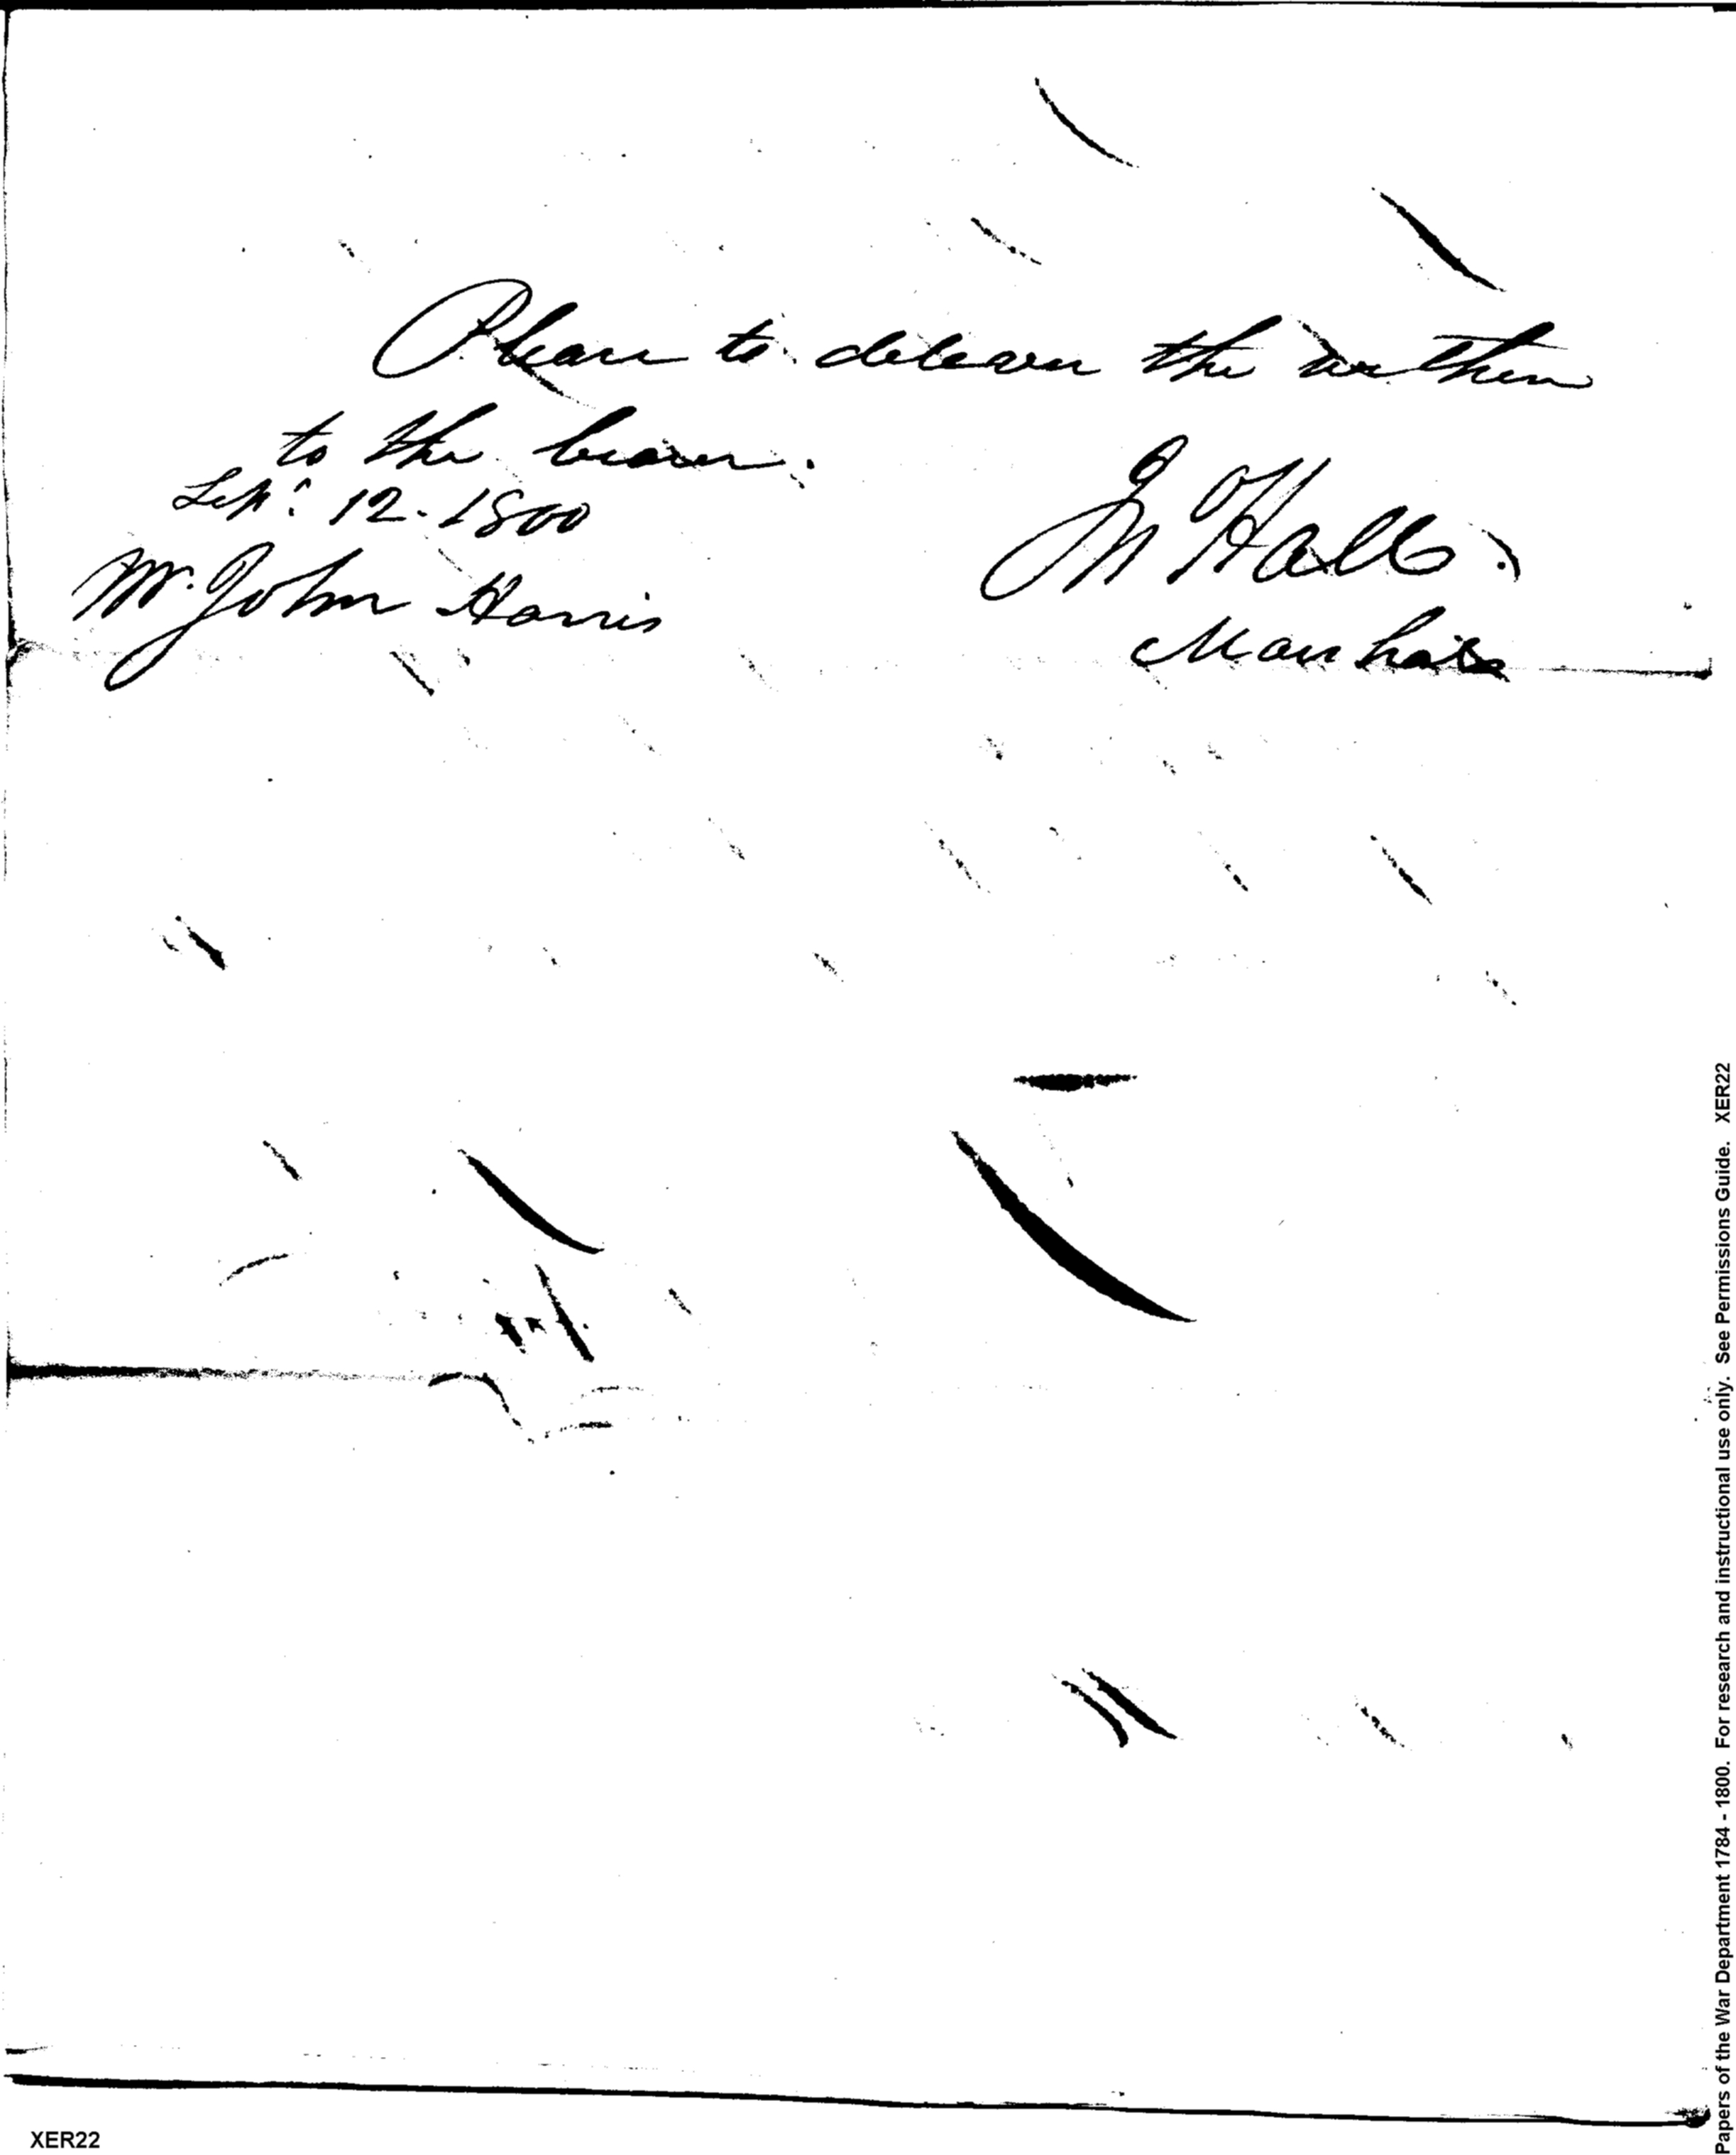 Please to deliver the within
to the bearer.
Sepr. 12. 1800
Mr. John Harris
Hall.
Marshal
Papers of the War Department 1784 - 1800. For research and instructional use only. See Permissions Guide. XER22
XER22